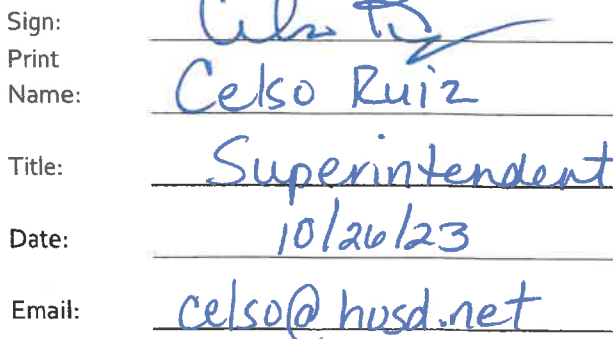 Sign:
Print
Name: Celso Ruiz
Title: Superintendent
Date: 10/26/23
Email: celso@husd.net